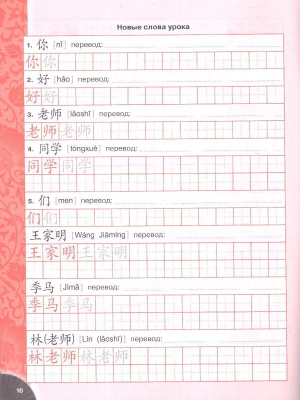 Новые слова урока
1. 你 [nǐ] перевод:
你 你
2. 好 [hǎo] перевод:
好 好
3. 老师 [lǎoshī] перевод:
老师 老师
4. 同学 [tóngxué] перевод:
同学 同学
5. 们 [men] перевод:
们 们
王家明 [Wáng Jiāmíng] перевод:
王家明 王家明
季马 [Jìmǎ] перевод:
季马 季马
林(老师) [Lín (lǎoshī)] перевод:
林老师 林老师
16